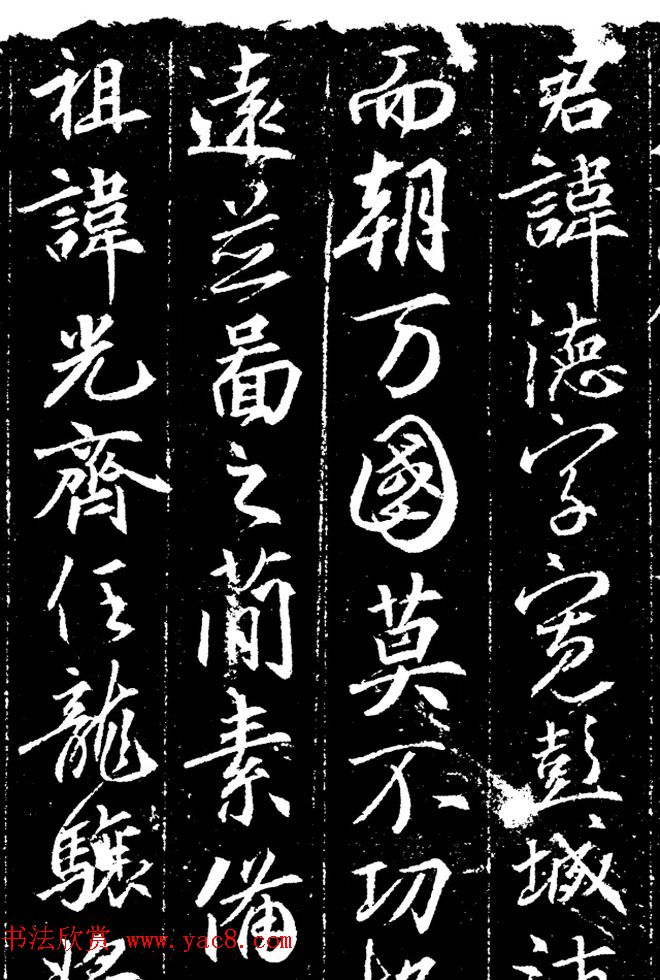 君諱德字寛彭城
而朝万國莫不切
遠並啚之蕳素備
祖諱光齊任龍驤將
书法欣赏 www.yac8.com